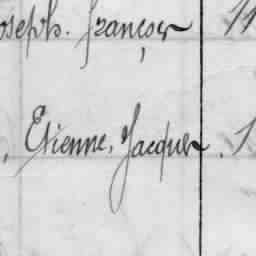 oseph. françois 11
, Etienne, Jacques. 1